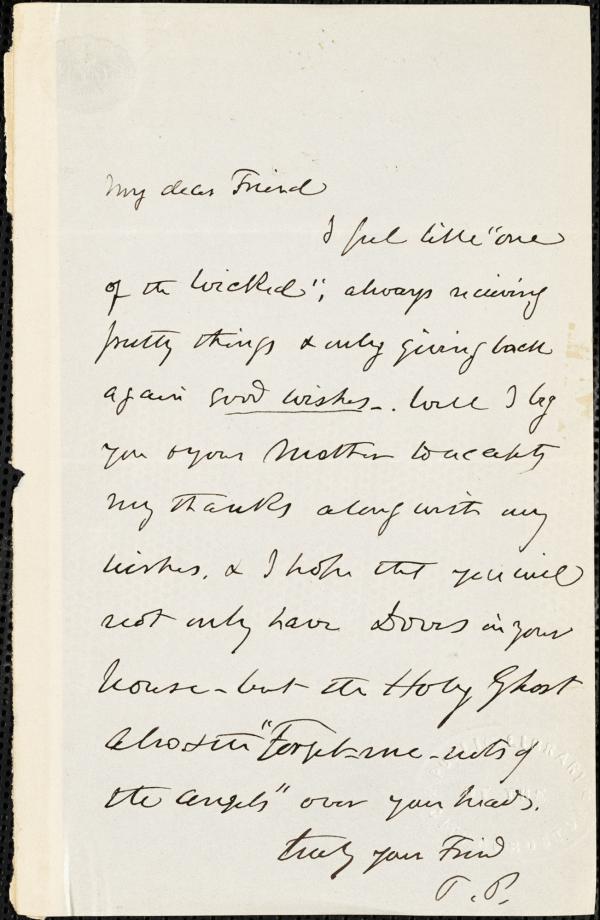 My dear Friend
I feel like "one
of the wicked", always recieving
pretty things & only giving back
again good wishes. Well I beg
you & your Mother to accept
my thanks along with my
wishes, & I hope that you will
not only have Doves in your
house - but the Holy Ghost
also & the "Forget-me-nots of
the angels" over your heads.
truly your Friend
T. P.